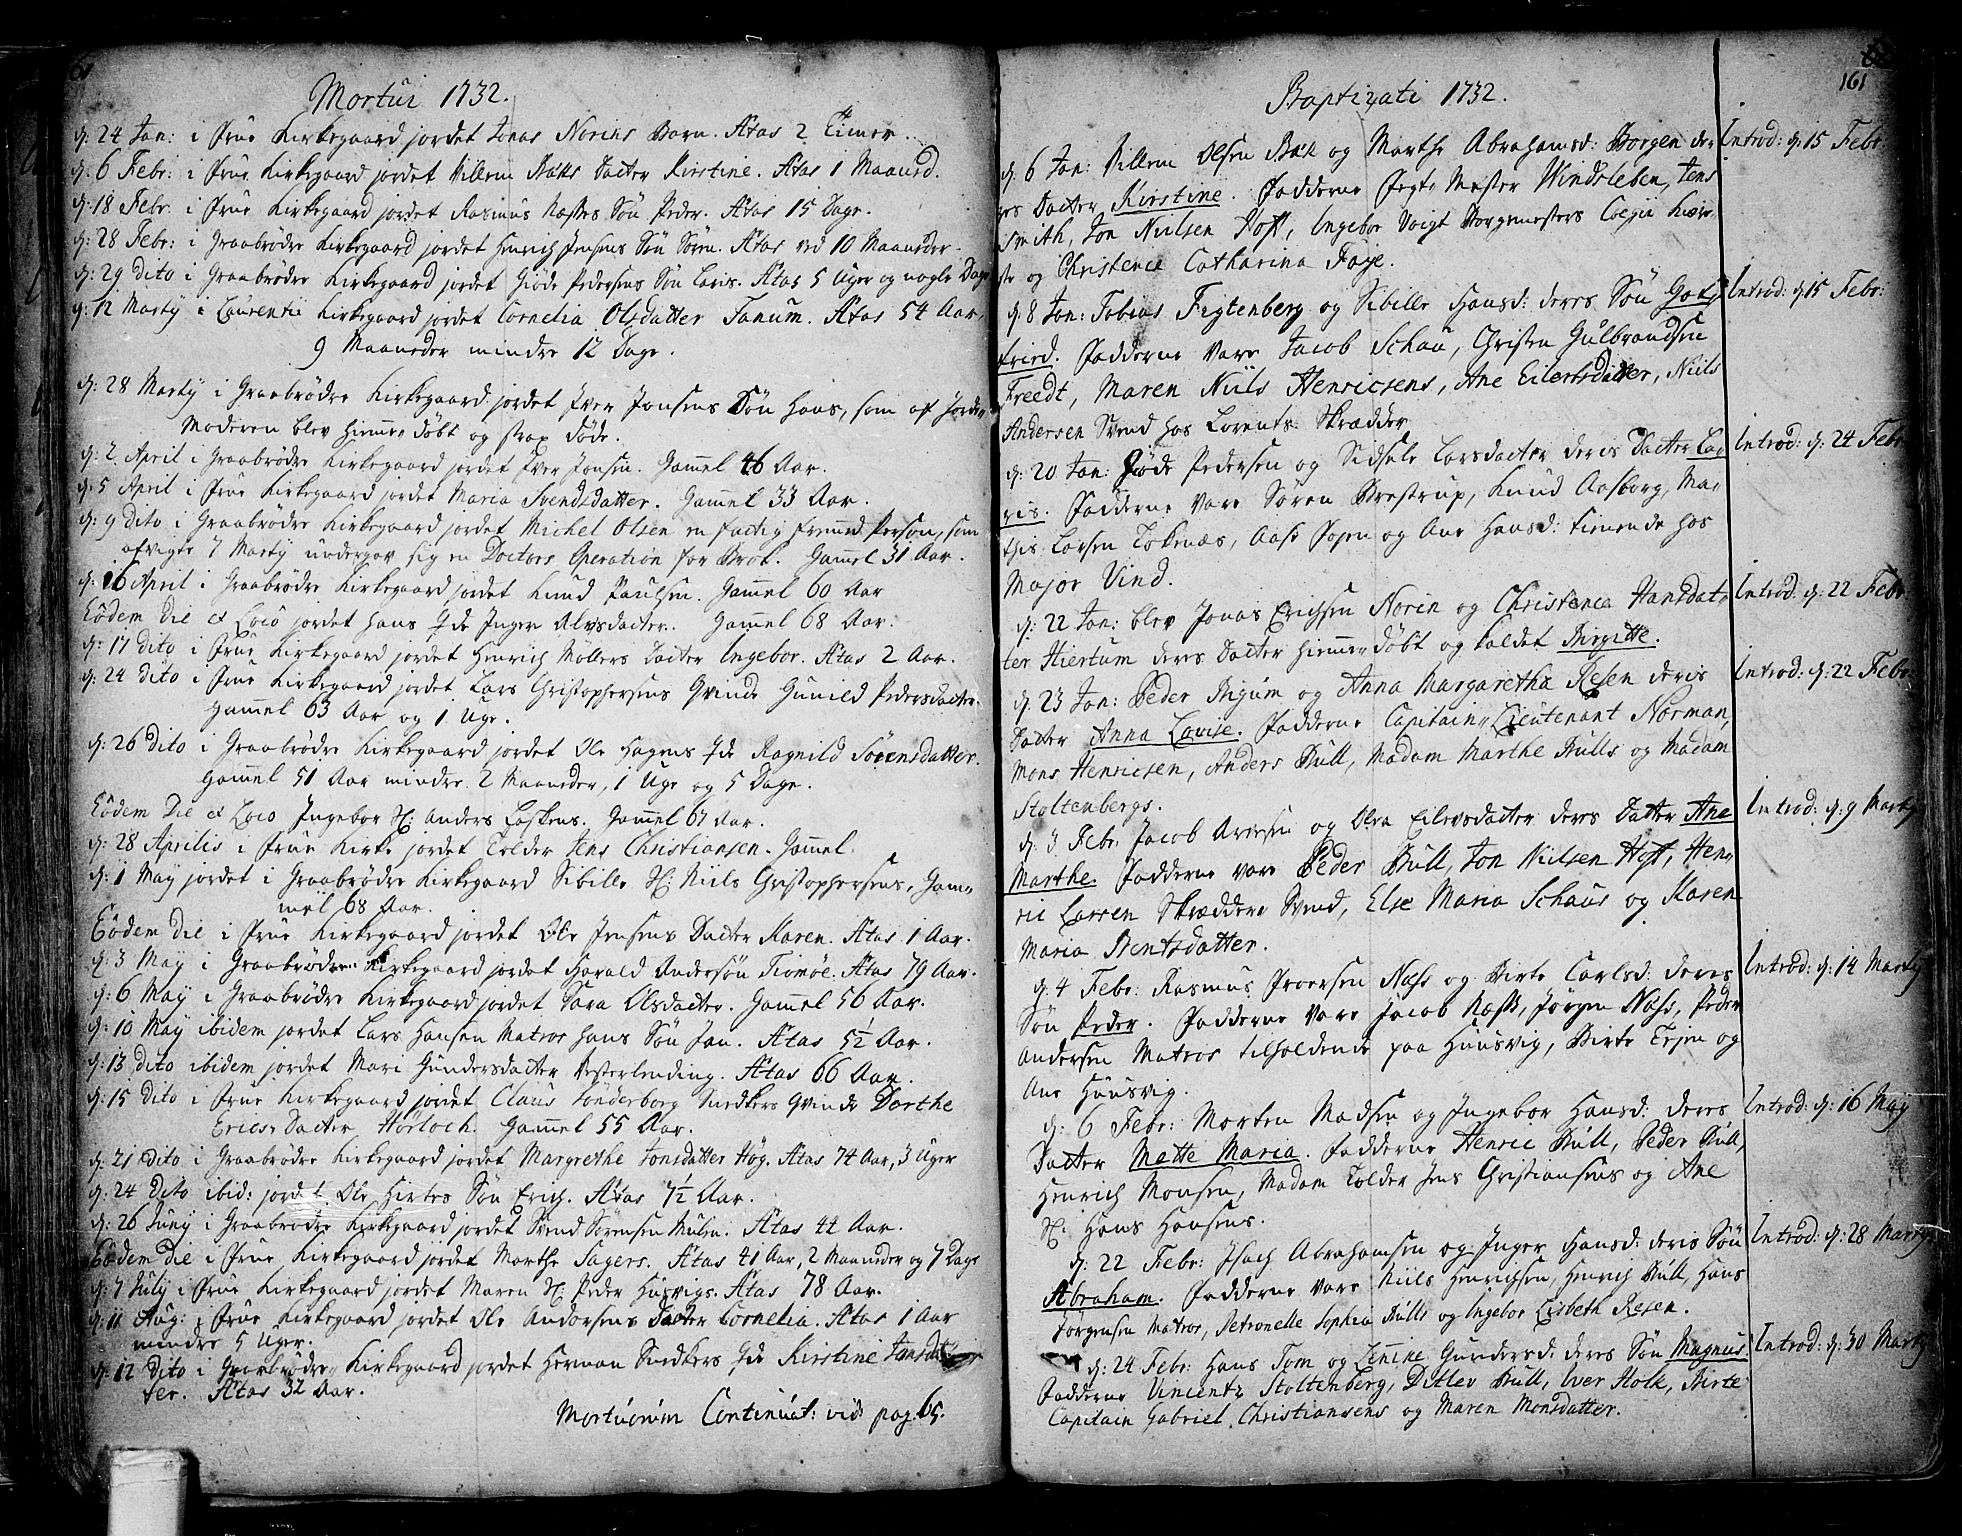 Mortui 1732.
d: 24 Jan: i Frue Kirkegaard jordet Jonas Norins Barn. Ætas 2 Timer.
d: 6 Febr: i Frue Kirkegaard jordet Villem Datter Kirstine. Ætas 1 Maaned.
d: 18 Febr: i Frue Kirkegaard jordet Rasmus Næsses Søn Peder. Ætas 15 Dage.
d: 28 Febr: i Graabrødre Kirkegaard jordet Henrich Jensens Søn Søren. Ætas ved 10 Maaneder.
d: 29 dito i Graabrødre Kirkegaard jordet Giøde Pedersens Søn Laris. Ætas 5 Uger og nogle Dage
d: 12 Marty i Laurentii Kirkegaard jordet Cornelia Olsdatter Fanum. Ætas 54 Aar,
9 Maaneder mindre 12 Dage.
d: 28 Marty i Graabrødre Kirkegaard jordet Iver Jonsens Søn Hans, som af Jorde
Moderen blev hiemme døbt og strax døde.
d: 2 April i Graabrødre Kirkegaard jordet Iver Jonsen. Gammel 46 Aar.
d: 5 April i Frue Kirkegaard jordet Maria Svendsdatter. Gammel 33 Aar.
d: 9 dito i Graabrødre Kirkegaard jordet Michel Olsen en fattig fremmed Person, som
afvigte 7 Marty undergav sig en Doctors Operation for Brok. Gammel 31 Aar.
d: 16 April i Graabrødre Kirkegaard jordet Knud Paulsen. Gammel 60 Aar
Eodem Die et Loco jordet Hans Inger Alvsdatter. Gammel 68 Aar.
d: 17 dito i Frue Kirkegaard jordet Henrich Møllers Datter Ingebor. Ætas 2 Aar.
d: 24 dito i Frue Kirkegaard jordet Lars Christophersens Qvinde Gunild Pedersdatter.
Gammel 63 Aar og 1 Uge.
d: 26 dito i Graabrødre Kirkegaard jordet Ole Hagens Ragnild Sørensdatter.
Gammel 51 Aar mindre 2 Maaneder, 1 Uge og 5 Dage.
Eodem Die et Loco Ingebor Sl: Anders Laskens. Gammel 67 Aar.
d: 28 Aprilis i Frue Kirke jordet Tolder Jens Christiansen. Gammel
d: 1 May jordet i Graabrødre Kirkegaard Sibille Sl: Niels Christophersens, Gam=
mel 68 Aar.
Eodem Die i Frue Kirkegaard jordet Ole Jensens Datter Karen. Ætas 1 Aar.
d: 3 May i Graabrødre Kirkegaard jordet Harald Andersøn Tiomøe. Ætas 79 Aar.
d: 6 May i Graabrødre Kirkegaard jordet Sara Olsdatter. Gammel 56 Aar.
d: 10 May ibidem jordet Lars Hansen Matros hans Søn Jan. Ætas 5½ Aar.
d: 13 dito ibidem jordet Mari Gundersdatter Vesterlending. Ætas 66 Aar.
d: 15 dito i Frue Kirkegaard jordet Claus Sønderborg Snedkers Qvinde Dorthe
Erics Datter Hørloch. Gammel 55 Aar.
d: 21 dito i Graabrødre Kirkegaard jordet Margrethe Jonsdatter Høg. Ætas 74 Aar, 3 Uger
d: 24 dito ibid: jordet Ole Hirtes Søn Erich. Ætas 7½ Aar.
d: 26 Juny i Graabrødre Kirkegaard jordet Svend Sørensen Mulen. Ætas 44 Aar.
Eodem Die i Frue Kirkegaard jordet Marthe Sagers. Ætas 41 Aar, 2 Maaneder og 7 Dage
d: 7 July i Frue Kirkegaard jordet Maren Sl: Peder Husvigs. Ætas 78 Aar.
d: 11 Aug: i Frue Kirkegaard jordet Ole Andersens Datter Cornelia. Ætas 1 Aar
mindre 5 Uger.
d: 12 dito i Graabrødre Kirkegaard jordet Herman Snedkers Kirstine Jansdat=
ter. Ætas 32 Aar.
Mortuorum Continuat: vid: pag. 65.
161
Baptizati 1732.
d. 6 Jan: Villem Olsen Bæk og Marthe Abrahamsd: Borgen der= Introd: d: 15 Febr.
es Datter Kirstine. Fadderne Fegte Mester Windsleben, Jens
Smith, Jon Nielsen Hoff, Ingebor Voigt Borgemesters Coegii Kiere=
ste og Christence Catharina Foye.
d. 8 Jan: Tobias Figtenberg og Sibille Hansd: deres Søn Gott= Introd: d: 15 Febr:
fried. Fadderne vare Jacob Schau, Christen Gulbrandsen
Freedt, Maren Niels Henricsens, Ane Eilertsdatter, Niels
Andersen Svend hos Lorents Skrædder
d: 20 Jan: Giøde Pedersen og Sidsele Larsdatter deres Datter La= Introd: d: 24 Febr
ris. Fadderne vare Søren Brestrup, Knud Aasborg, Ma=
this Larsen Tokenæs, Aase Pojen og Ane Hansd: tienende hos
Major Vind.
d: 22 Jan: blev Jonas Erichsen Norin og Christence Hansdat= Introd: d: 22 Febr.
ter Hiertum deres Datter hiemme døbt og kaldet Birgitte.
d. 23 Jan: Peder Bigum og Anna Margaretha Resen deris Introd: d: 22 Febr:
Datter Anna Lovise. Fadderne Capitain=Lieutenant Norman,
Mons Henricsen, Anders Bull, Madam Marthe Bulls og Madam
Stoltenbergs.
d. 3 Febr: Jacob Aresen og Olea Eilevsdatter deres Datter Ane Introd: d: 9 Marty
Marthe. Fadderne vare Peder Bull, Jon Nielsen Hoff, Hen=
ric Larsen Skrædder Svend, Else Maria Schaus og Karen
Maria Bentsdatter.
d. 4 Febr: Rasmus Iversen Næss og Birte Carlsd: deres Introd: d: 14 Marty
Søn Peder. Fadderne vare Jacob Næss, Jørgen Næss, Peder
Andersen Matros tilholdende paa Huusvig, Birte Tejen og
Ane Huusvig.
d: 6 Febr: Morten Madsen og Ingebor Hansd: deres Introd: d: 16 May
Datter Mette Maria. Fadderne Henric Bull, Peder Bull,
Henrich Monsen, Madam Tolder Jens Christiansens og Ane
Sl: Hans Hansens.
d: 22 Febr: Isach Abrahamsen og Inger Hansd: deris Søn Introd: d: 28 Marty
Abraham. Fadderne vare Niels Henrichsen, Henrich Bull, Hans
Jørgensen Matros, Petronelle Sophia Bulls og Ingebor Lisbeth Resen.
d: 24 Febr: Hans Tom og Lenike Gundersd: deres Søn Magnus. Introd: d: 30 Marty
Fadderne Vincentz Stoltenberg, Ditlev Bull, Iver Holk, Birte
Capitain Gabriel Christiansens og Maren Monsdatter.